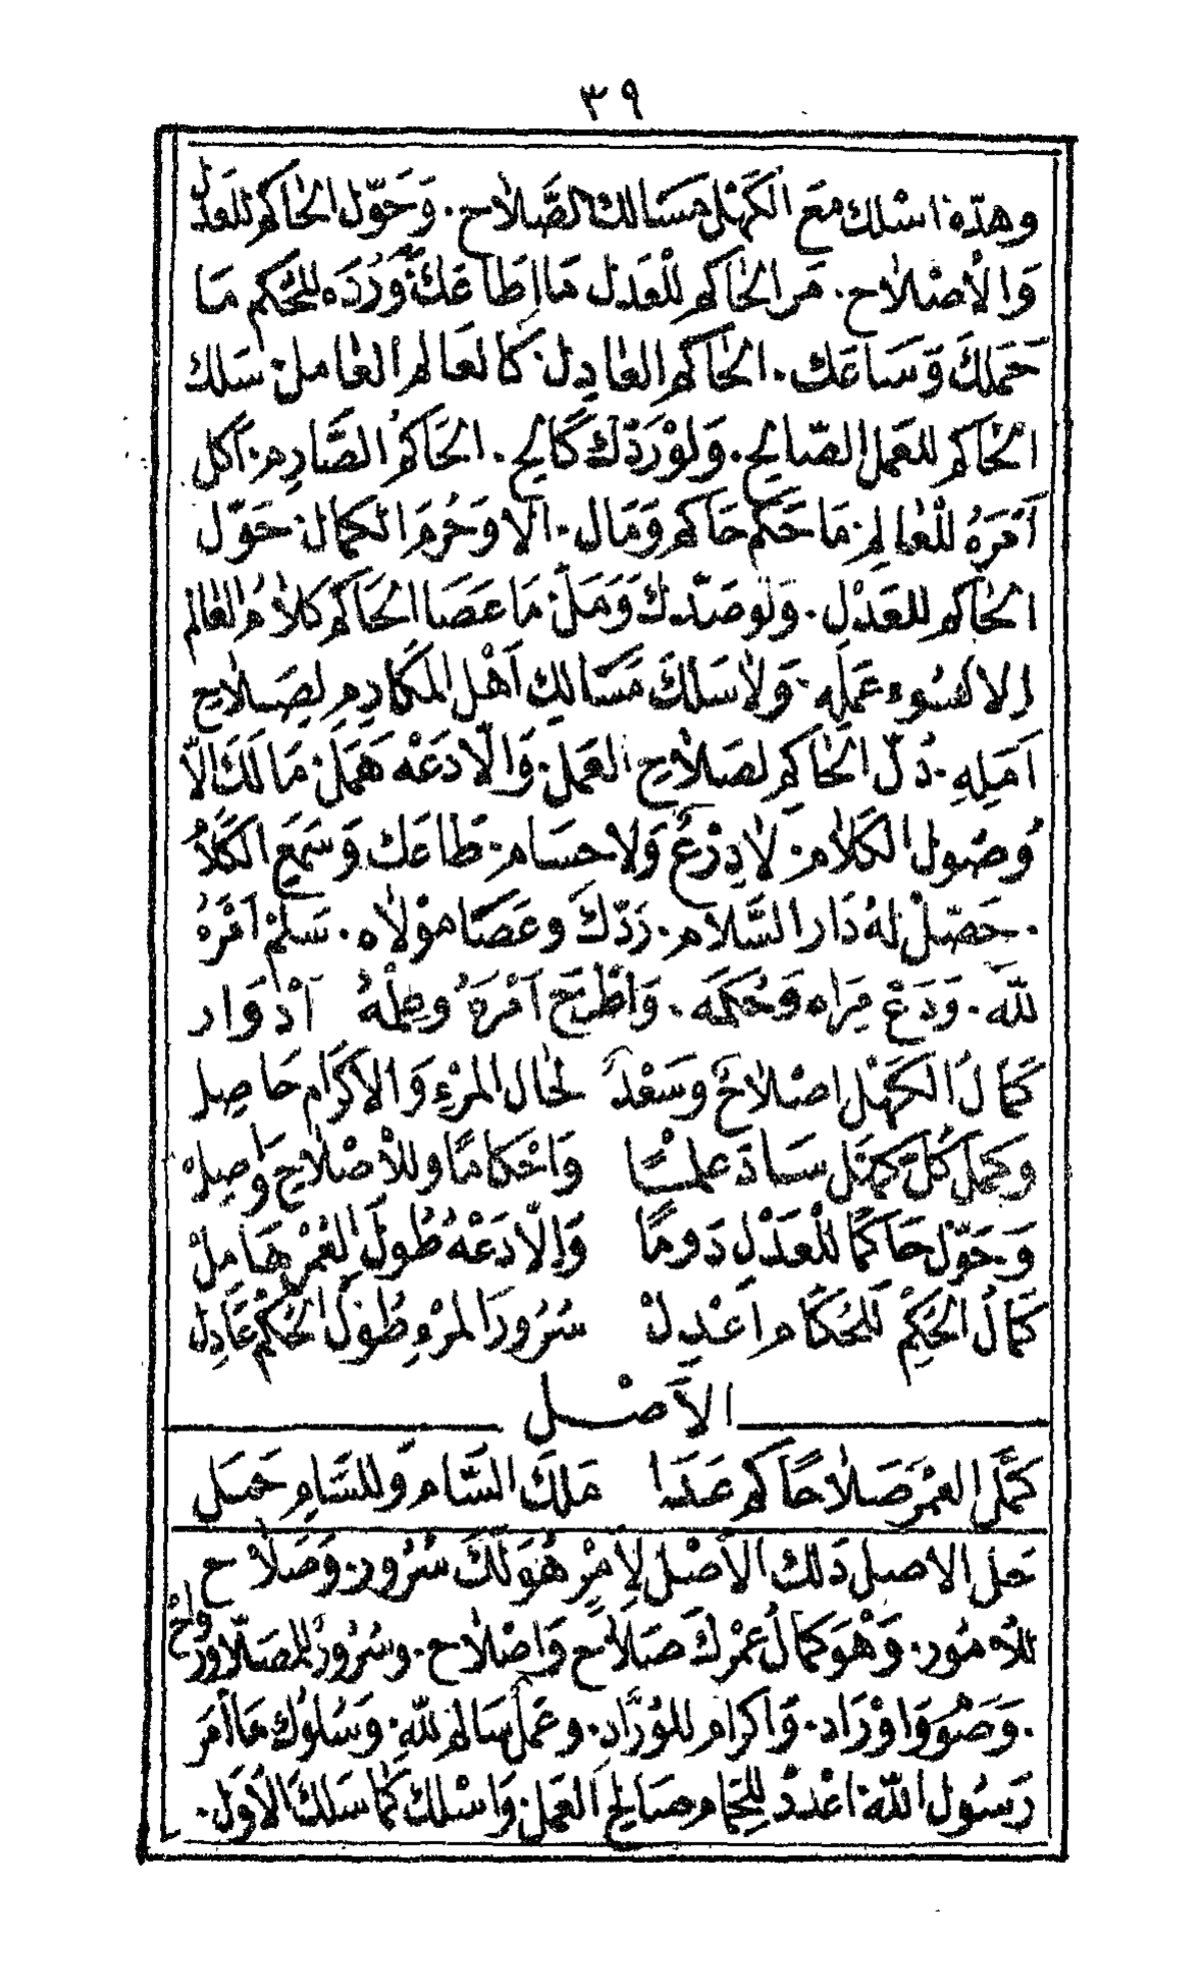 ٣٩
وهده اسلك مع الكهل مسالك الصَّلاح. وَحَوّل الحاكم للعَدل
وَالاصْلاح. مر الحاكم للْعَدل مَا اطَاعَكَ وَرُدَه للحُكم مَا
حَمَلكَ وَسَاعَك. الحاكم العادِل كالعَالم العامل سَلك
الحاكم للعَمل الصّالح. وَلوْ رَدّكَ كَالح. الحَاكمُ الصَّارِم. اَكل
اَمْرَهُ للعَالِم مَا حَكم حَاكم وَمَال. الا وَحُرمَ الكمال حَوّل
الحاكم للعَدْل. وَلَو صَدّكَ وَمَلّ مَا عَصَا الحَاكم كَلامُ العَالم
اِلا لسُوء عَمَلِه. وَلا سَلكَ مَسَالِك اَهْل المَكارِمِ لِصَلاحِ
اَمَلِهِ. دُلّ الحَاكِم لصَلاح العَمل. وَالّا دَعْه هَمَل. مَا لَكَ الّا
وُصُول الكَلام. لا دِرْعٌ وَلا حسَام. طَاعَك وَسَمعَ الكَلَامُ
. حَصّلْ لهُ دَار السَّلام. رَدّكَ وعَصَا موْلاه. سَلمْ اَمْرَهُ
للّه. وَدَعْ مِرَاه وَحُكمَه. وَاطْرَح اَمْرَهُ وعِلْمهُ اَدْوَار
كَمَالُ الكَهْل اصْلاحٌ وسَعْدٌ لحَال المرْءِ وَالاكرَام حَاصِل
وَكمّل كُلّ كهْل سَادَ علمْا وَاحْكامًا وللاصْلاح وَاصِلْ
وَحَوّل حَاكمًا للْعَدْل دَومًا وَالّا دَعْهُ طُولَ العُمْر هَامِلْ
كَمَالُ الحُكمْ للحُكّام اَعْدِلْ سُرُور المرْءِ طُولَ الحُكمْ عَادِل
الاَصْل
كَمّل العُمْرَ صَلاحًا كم عَدَا مَلكَ السَّام وَللسَّامِ حَمَل
حَل الاصل دَلك الاَصْل لاِمرْ هُوَ لكَ سُرُور. وَصَلاح
للامُور. وَهْوَ كمَالُ عمْركَ صَلاح وَاصْلاح. وسُرُورٌ للمصَلّا وَرَدْ وَاحْ
. وَصُو وَاوْرَاد. وَاكرَام للوُرَّاد. وعَمل سَالم للّهِ. وَسُلوُك مَا اَمَر
رَسُول اللّه اعْدْدْ للحِمَام صَالح العَمل وَاسْلك كَمَا سَلكَ الاوَل.